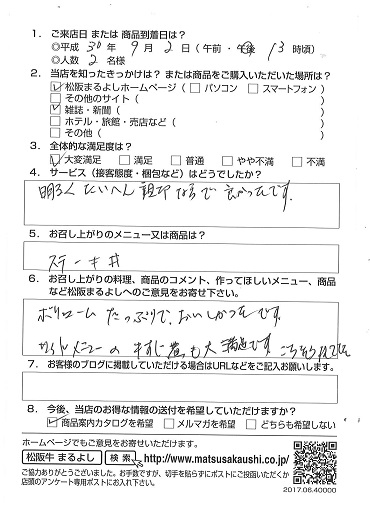 1. ご来店日 または 商品到着日は？
◎平成 30 年 9 月 2 日（午前・午後 13 時頃）
◎人数 2 名様
2. 当店を知ったきっかけは？ または商品をご購入いただいた場所は？
☑松阪まるよしホームページ（□パソコン □スマートフォン）
□その他のサイト（ ）
☑雑誌・新聞（ ）
□ホテル・旅館・売店など（ ）
□その他（ ）
3. 全体的な満足度は？
☑大変満足 □満足 □普通 □やや不満 □不満
4. サービス（接客態度・梱包など）はどうでしたか？
明るく たいへん 親切 で 良かったです.
5. お召し上がりのメニュー又は商品は？
ステーキ丼
6. お召し上がりの料理、商品のコメント、作ってほしいメニュー、商品
など松阪まるよしへのご意見をお寄せ下さい。
ボリューム たっぷりで、おいしかったです.
サイドメニューの 牛すじ煮も大満足です.
7. お客様のブログに掲載していただける場合はURLなどをご記入お願いします。
8. 今後、当店のお得な情報の送付を希望していただけますか？
☑商品案内カタログを希望 □メルマガを希望 □どちらも希望しない
ホームページでもご意見をお寄せいただけます。
松阪牛 まるよし 検索 http://www.matsusakaushi.co.jp/
ご協力ありがとうございました。お手数ですが、切手を貼らずにポストにご投函いただくか
店頭のアンケート専用ポストにお入れ下さい。
2017.06.40000